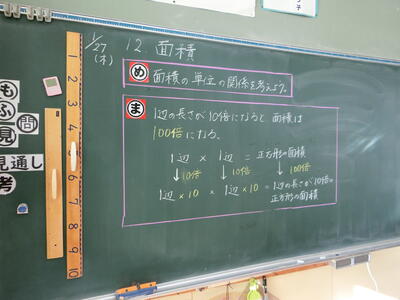 1/27
(木)
12. 面積
め 面積の単位の関係を考えよう。
ま 1辺の長さが10倍になると 面積は
100倍になる。
1辺 × 1辺 = 正方形の面積
↓10倍 ↓10倍 ↓100倍
1辺×10 × 1辺×10 = 1辺の長さが10倍の
正方形の面積
も
ふ
問
見
見通し
考
1
2
3
4
5
6
7
8
9
10